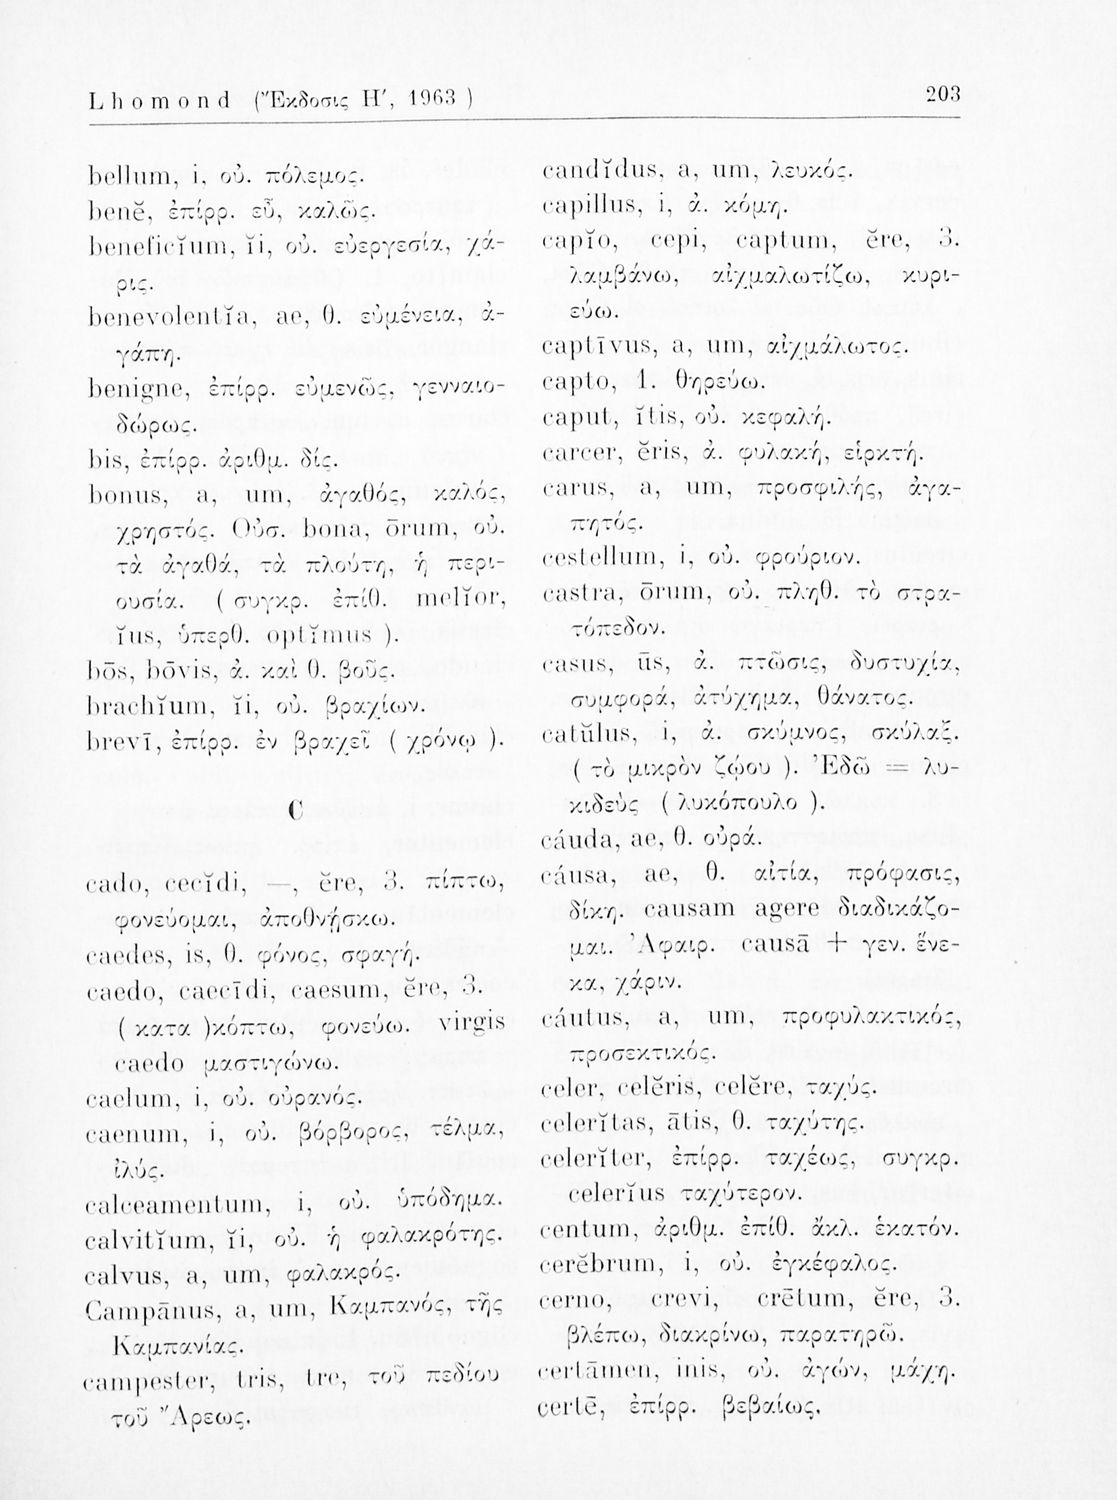 Lhomond (Ἔκδοσις Η', 1963 )
203
bellum, i, οὐ. πόλεμος.
benĕ, ἐπίρρ. εὖ, καλῶς.
beneficĭum, ĭi, οὐ. εὐεργεσία, χά-
ρις.
benevolentĭa, ae, θ. εὐμένεια, ἀ-
γάπη.
benigne, ἐπίρρ. εὐμενῶς, γενναιο-
δώρως.
bis, ἐπίρρ. ἀριθμ. δίς.
bonus, a, um, ἀγαθός, καλός,
χρηστός. Οὐσ. bona, ōrum, οὐ.
τὰ ἀγαθά, τὰ πλούτη, ἡ περι-
ουσία. ( συγκρ. ἐπίθ. melĭor,
ĭus, ὑπερθ. optĭmus ).
bōs, bōvis, ἀ. καὶ θ. βοῦς.
brachĭum, ĭi, οὐ. βραχίων.
brevī, ἐπίρρ. ἐν βραχεῖ ( χρόνῳ ).
C
cado, cecĭdi, —, ĕre, 3. πίπτω,
φονεύομαι, ἀποθνῄσκω.
caedes, is, θ. φόνος, σφαγή.
caedo, caecīdi, caesum, ĕre, 3.
( κατα )κόπτω, φονεύω. virgis
caedo μαστιγώνω.
caelum, i, οὐ. οὐρανός.
caenum, i, οὐ. βόρβορος, τέλμα,
ἰλύς.
calceamentum, i, οὐ. ὑπόδημα.
calvitĭum, ĭi, οὐ. ἡ φαλακρότης.
calvus, a, um, φαλακρός.
Campānus, a, um, Καμπανός, τῆς
Καμπανίας.
campester, tris, tre, τοῦ πεδίου
τοῦ Ἄρεως.
candĭdus, a, um, λευκός.
capillus, i, ἀ. κόμη.
capĭo, cepi, captum, ĕre, 3.
λαμβάνω, αἰχμαλωτίζω, κυρι-
εύω.
captīvus, a, um, αἰχμάλωτος.
capto, 1. θηρεύω.
caput, ĭtis, οὐ. κεφαλή.
carcer, ĕris, ἀ. φυλακή, εἱρκτή.
carus, a, um, προσφιλής, ἀγα-
πητός.
cestellum, i, οὐ. φρούριον.
castra, ōrum, οὐ. πληθ. τὸ στρα-
τόπεδον.
casus, ūs, ἀ. πτῶσις, δυστυχία,
συμφορά, ἀτύχημα, θάνατος.
catŭlus, i, ἀ. σκύμνος, σκύλαξ.
( τὸ μικρὸν ζῴου ). Ἐδῶ = λυ-
κιδεὺς ( λυκόπουλο ).
cáuda, ae, θ. οὐρά.
cáusa, ae, θ. αἰτία, πρόφασις,
δίκη. causam agere διαδικάζο-
μαι. Ἀφαιρ. causā + γεν. ἕνε-
κα, χάριν.
cáutus, a, um, προφυλακτικός,
προσεκτικός.
celer, celĕris, celĕre, ταχύς.
celerĭtas, ātis, θ. ταχύτης.
celerĭter, ἐπίρρ. ταχέως, συγκρ.
celerĭus ταχύτερον.
centum, ἀριθμ. ἐπίθ. ἄκλ. ἑκατόν.
cerĕbrum, i, οὐ. ἐγκέφαλος.
cerno, crevi, crētum, ĕre, 3.
βλέπω, διακρίνω, παρατηρῶ.
certāmen, inis, οὐ. ἀγών, μάχη.
certē, ἐπίρρ. βεβαίως.